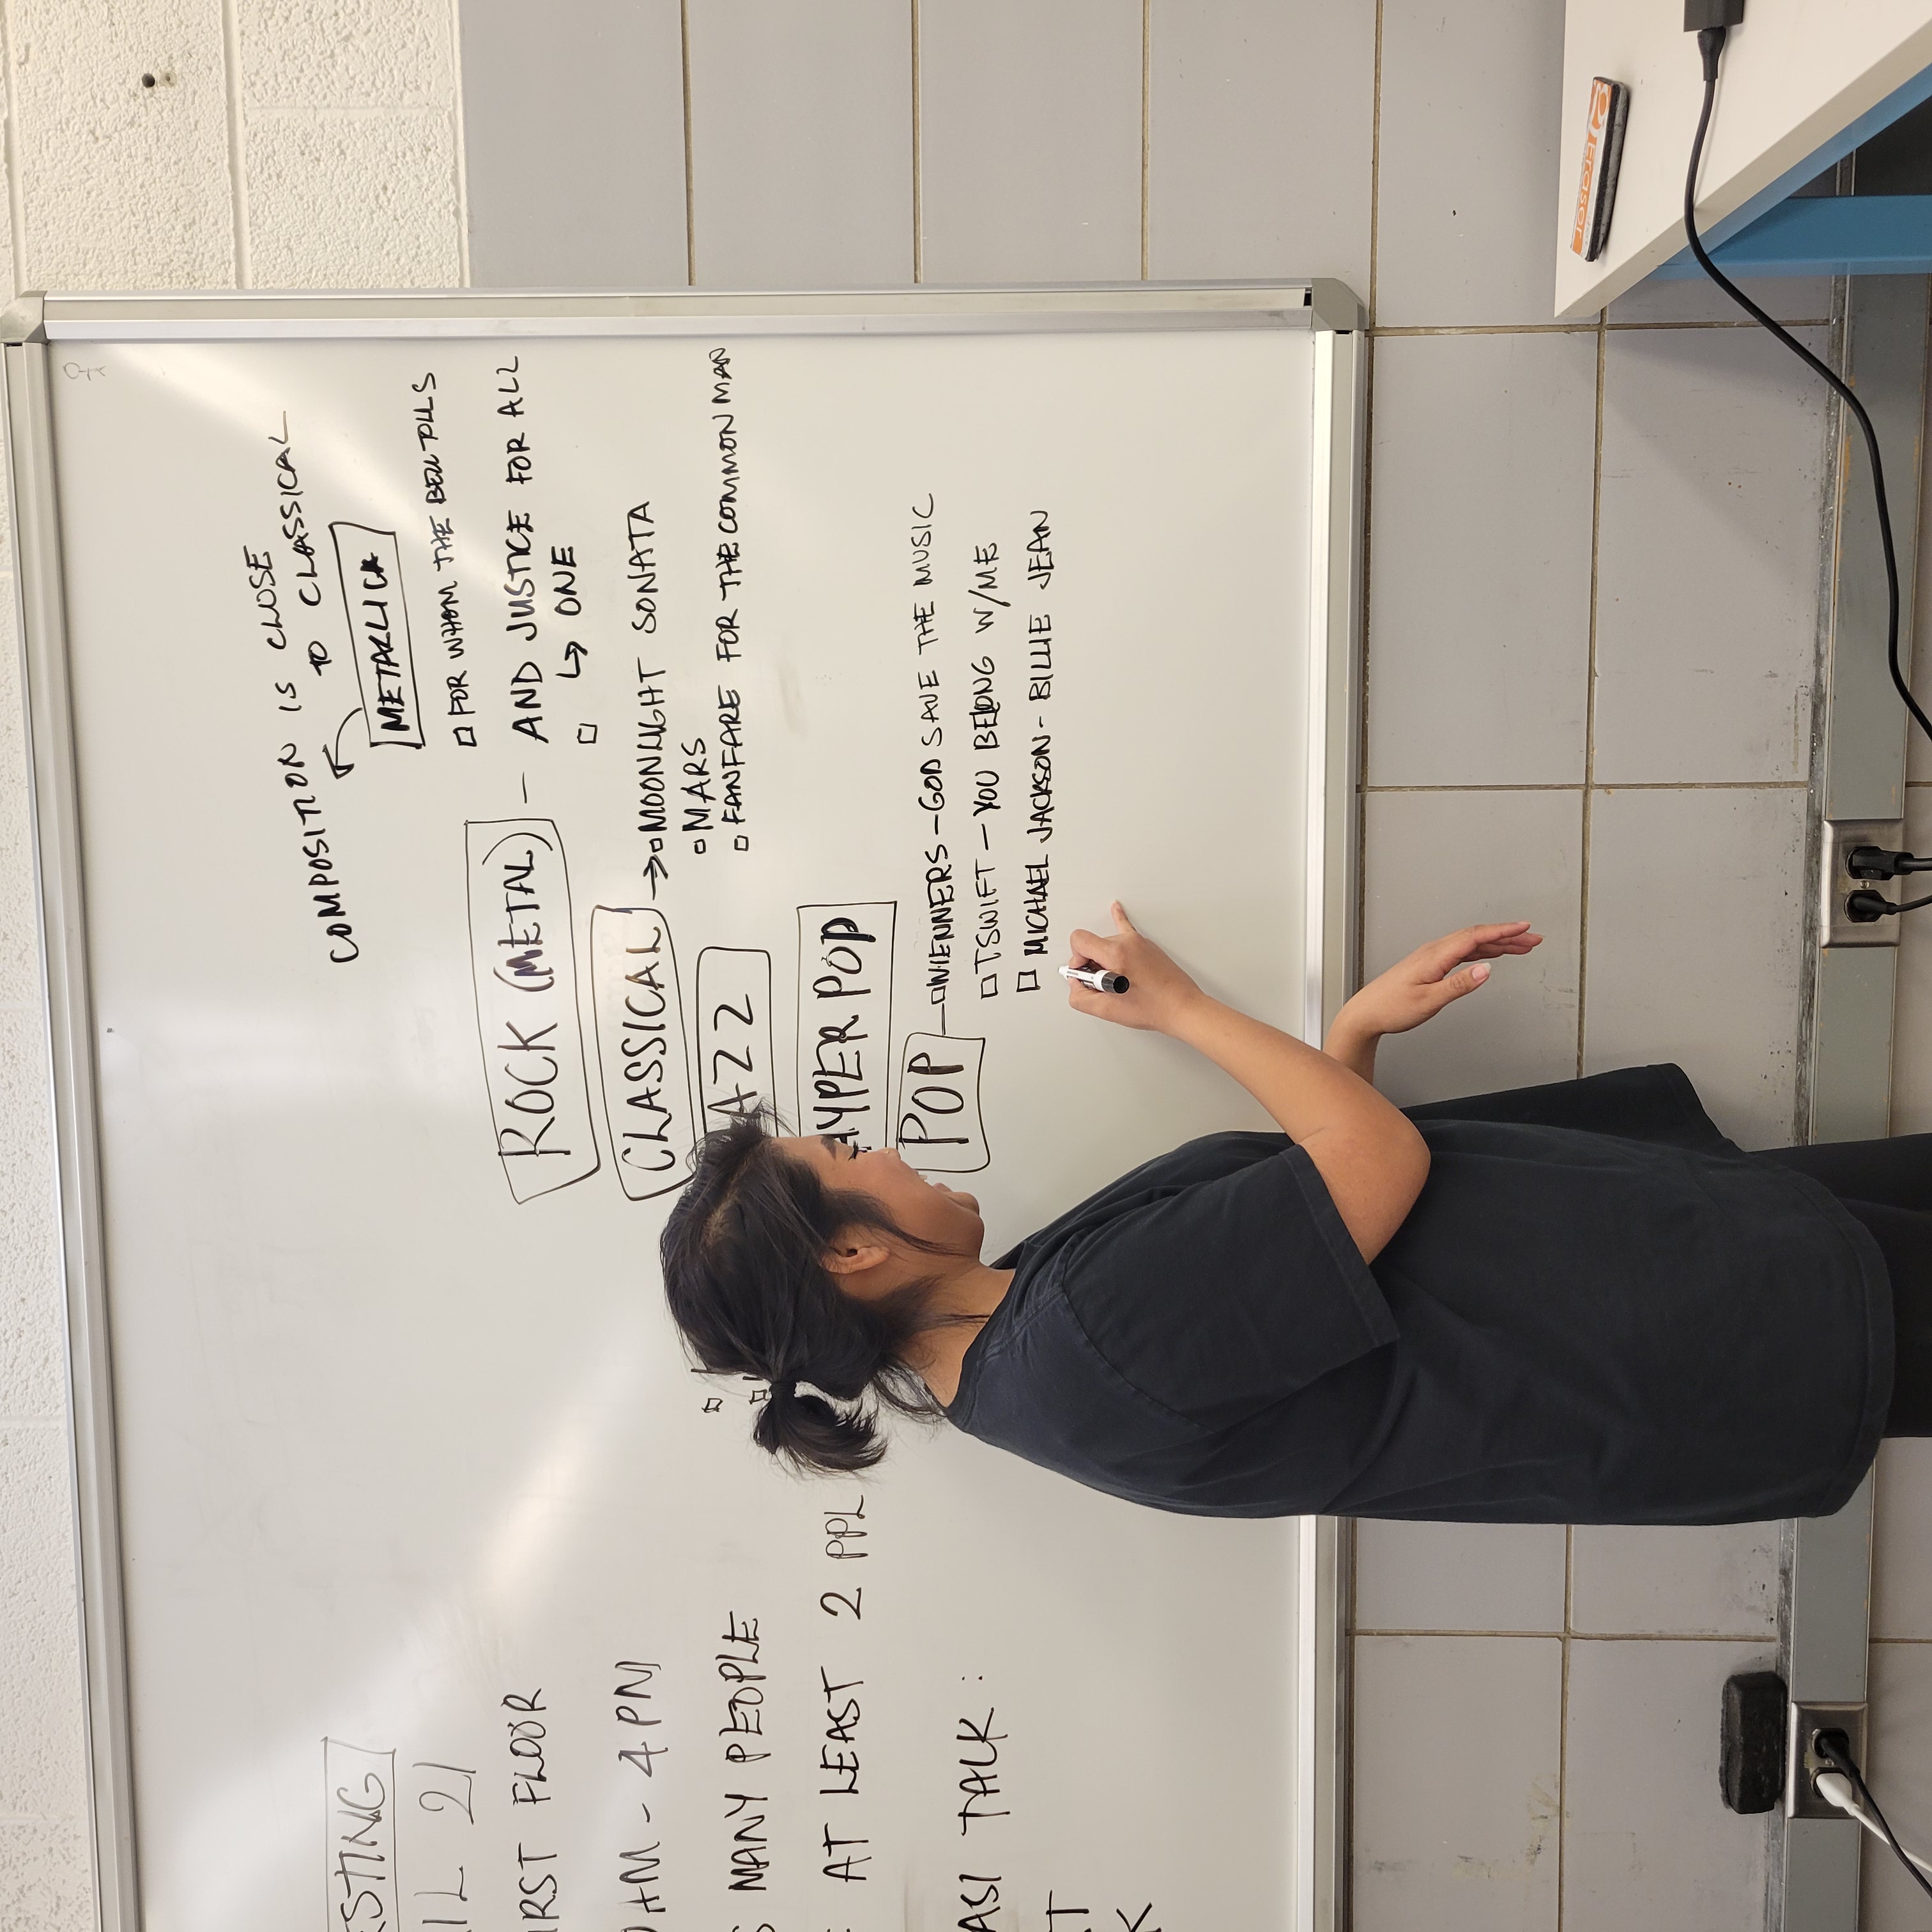 TESTING
21
FIRST FLOOR
AM - 4 PM
MANY PEOPLE
AT LEAST 2 PPL
TALK :
COMPOSITION IS CLOSE
TO CLASSICAL
METALLICA
FOR WHOM THE BELL TOLLS
ROCK (METAL) — AND JUSTICE FOR ALL
↳ ONE
CLASSICAL → MOONLIGHT SONATA
MARS
FANFARE FOR THE COMMON MAN
AZZ
HYPER POP
POP — WIENNERS — GOD SAVE THE MUSIC
TSWIFT — YOU BELONG W/ME
MICHAEL JACKSON - BILLIE JEAN
Erasor